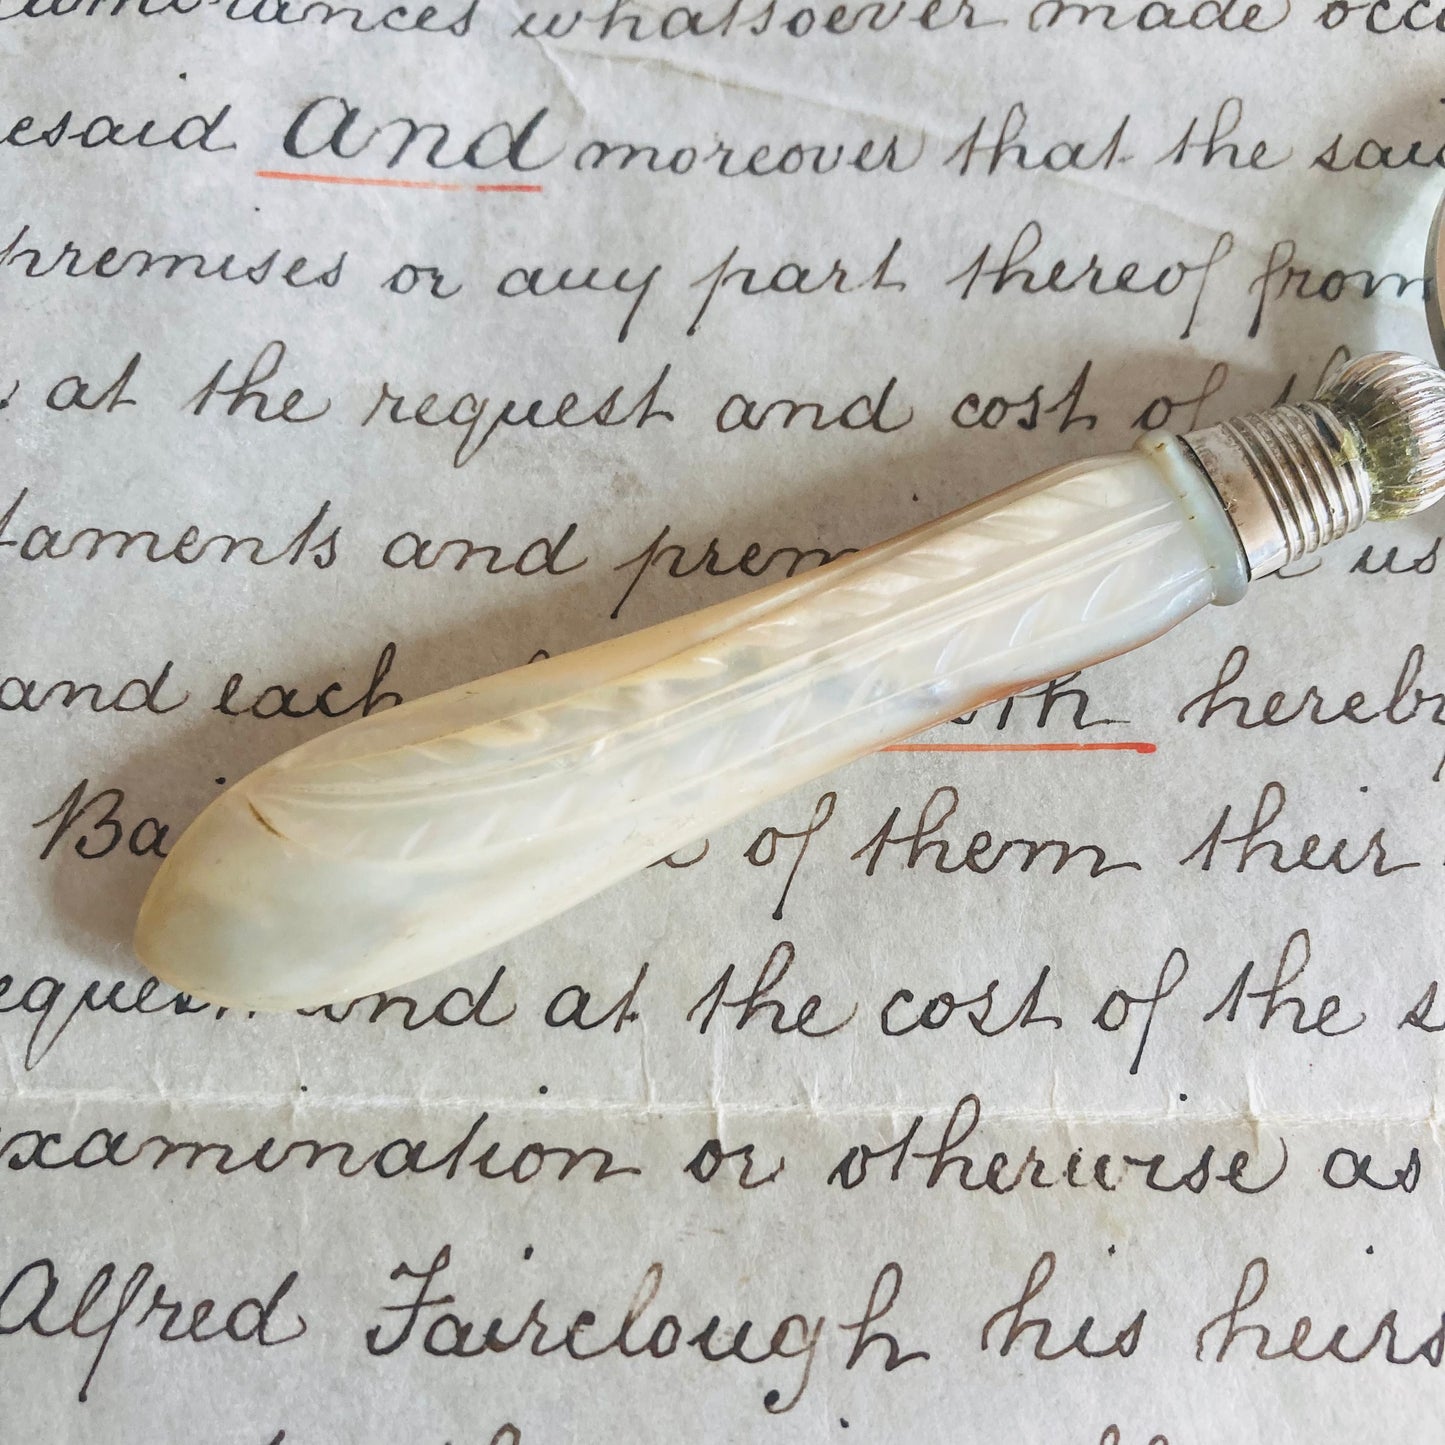 whatsoever made
esaid And moreover that the said
premises or any part thereof from
at the request and cost of
taments and prem us
and each oth hereby
Ba of them their
eques and at the cost of the s
xamination or otherwise as
Alfred Fairclough his heirs